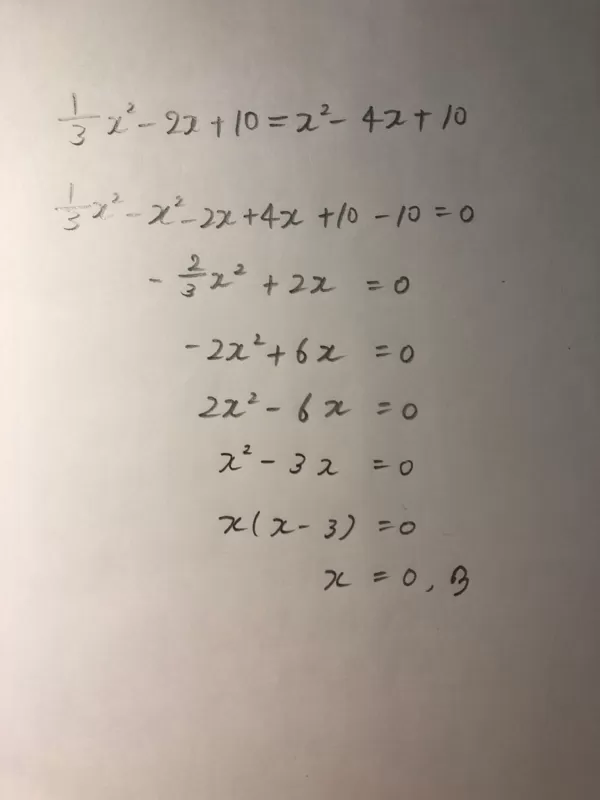 1/3 x² - 2x + 10 = x² - 4x + 10
1/3 x² - x² - 2x + 4x + 10 - 10 = 0
- 2/3 x² + 2x = 0
- 2x² + 6x = 0
2x² - 6x = 0
x² - 3x = 0
x(x - 3) = 0
x = 0, 3